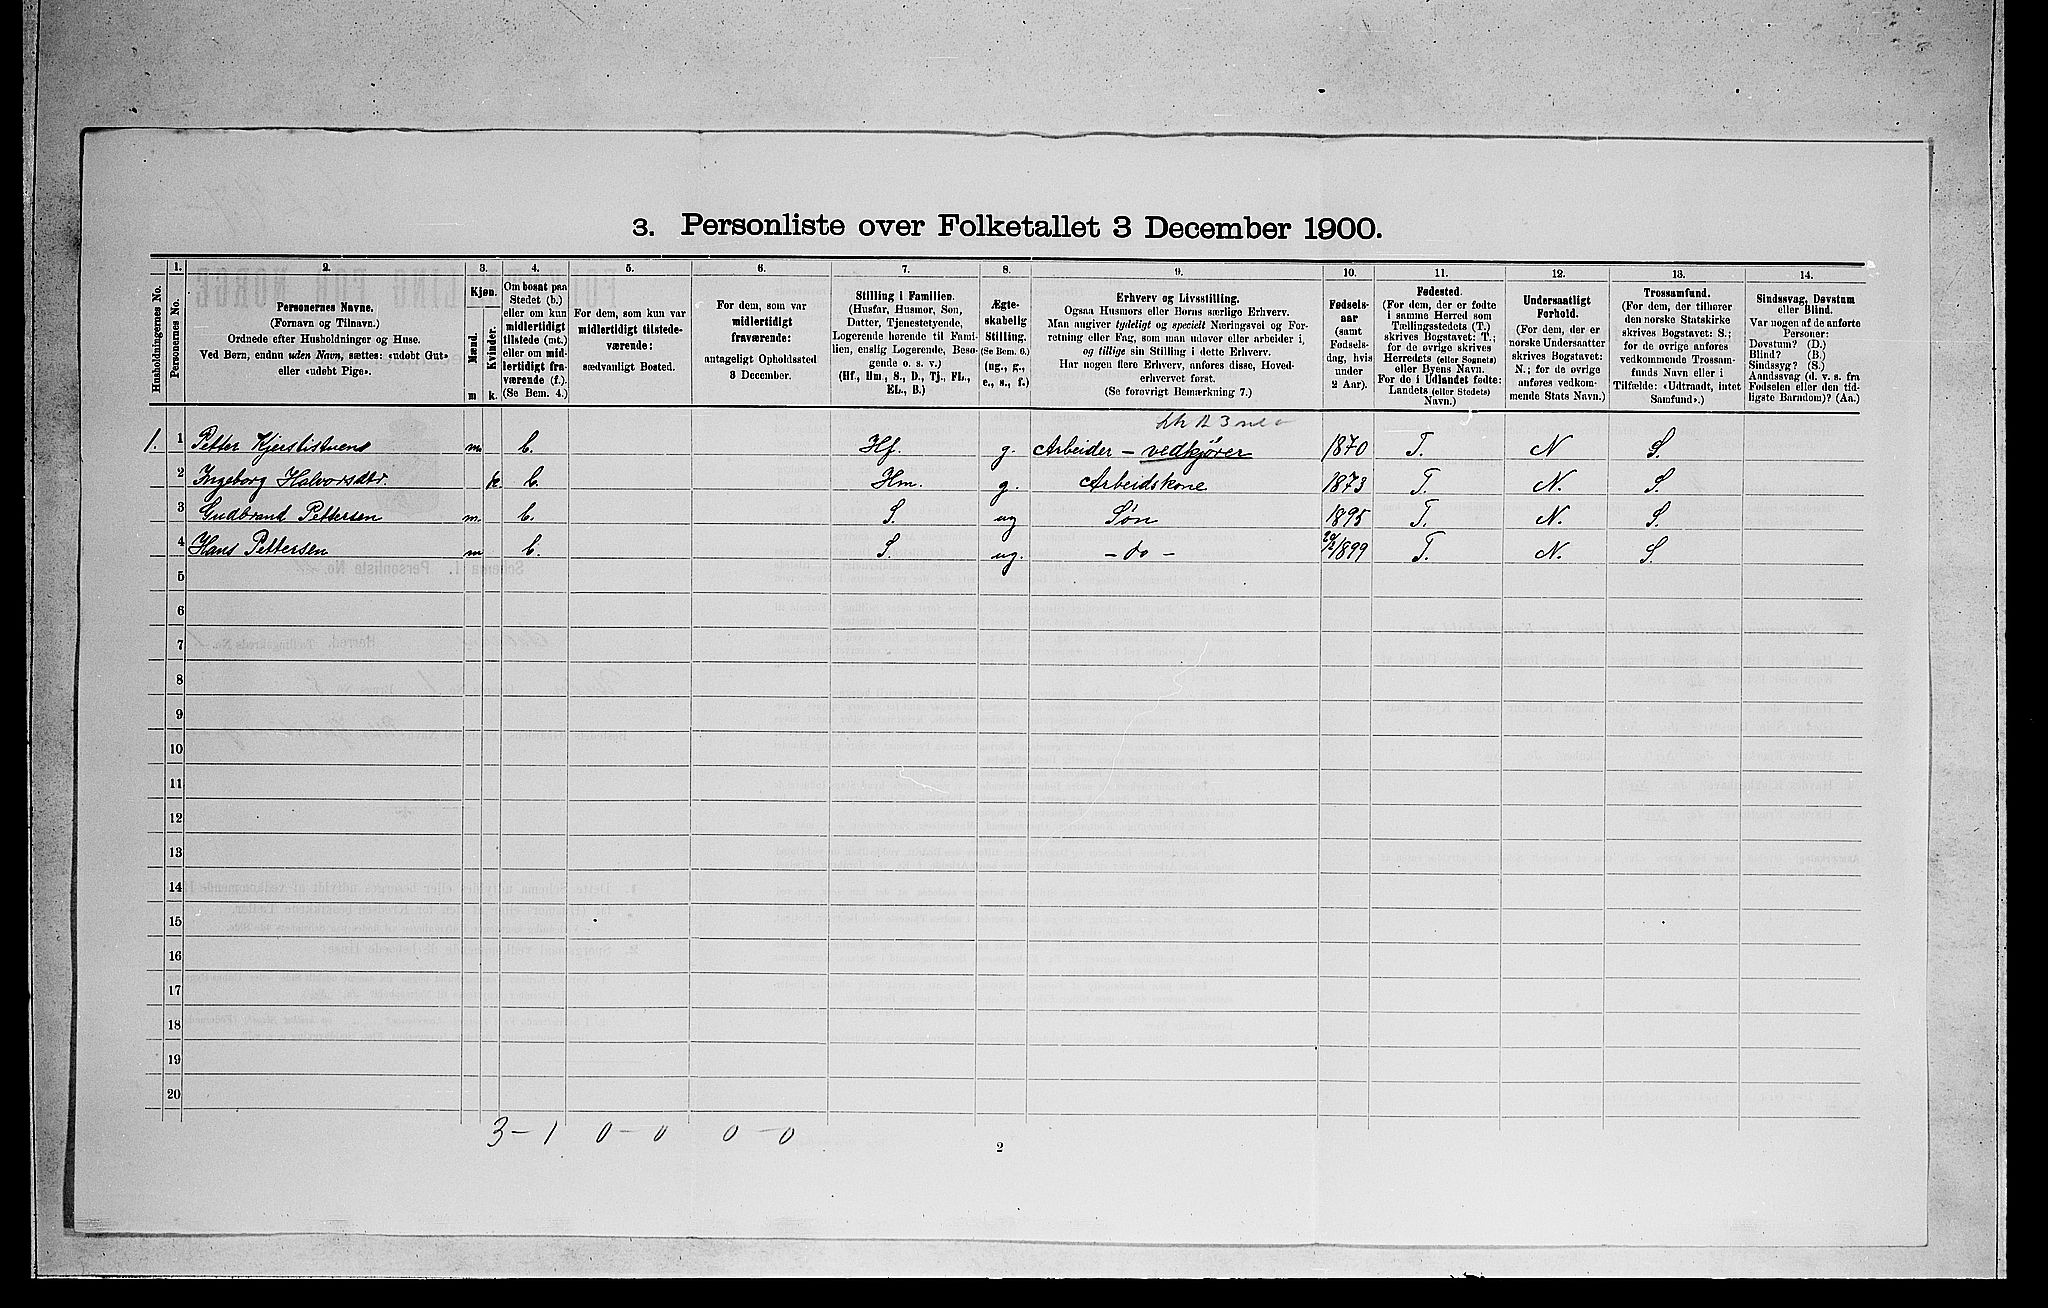 3. Personliste over Folketallet 3 December 1900.
Husholdningernes No.
1.
Personernes No.
2.
Personernes Navne.
(Fornavn og Tilnavn.)
Ordnede efter Husholdninger og Huse.
Ved Børn, endnu uden Navn, sættes: «udøbt Gut»
eller «udøbt Pige».
3.
Kjøn.
Mænd.
Kvinder.
m
k.
4.
Om bosat paa
Stedet (b.)
eller om kun
midlertidigt
tilstede (mt.)
eller om mid-
lertidigt fra-
værende (f.).
(Se Bem. 4.)
5.
For dem, som kun var
midlertidigt tilstede-
værende:
sædvanligt Bosted.
6.
For dem, som var
midlertidigt
fraværende:
antageligt Opholdssted
3 December.
7.
Stilling i Familien.
(Husfar, Husmor, Søn,
Datter, Tjenestetyende,
Logerende hørende til Fami-
lien, enslig Logerende, Besø-
gende o. s. v.)
(Hf., Hm., S., D., Tj., FL.,
EL., B.)
8.
Ægte-
skabelig
Stilling.
(Se Bem. 6.)
(ug., g.,
e., s., f.)
9.
Erhverv og Livsstilling.
Ogsaa Husmors eller Børns særlige Erhverv.
Man angiver tydeligt og specielt Næringsvei og For-
retning eller Fag, som man udøver eller arbeider i,
og tillige sin Stilling i dette Erhverv.
Har nogen flere Erhverv, anføres disse, Hoved-
erhvervet først.
(Se forøvrigt Bemærkning 7.)
10.
Fødsels-
aar
(samt
Fødsels-
dag, hvis
under
2 Aar).
11.
Fødested.
(For dem, der er fødte
i samme Herred som
Tællingsstedets (T.)
skrives Bogstavet: T.;
for de øvrige skrives
Herredets (eller Sognets)
eller Byens Navn.
For de i Udlandet fødte:
Landets (eller Stedets)
Navn.)
12.
Undersaatligt
Forhold.
(For dem, der er
norske Undersaatter
skrives Bogstavet:
N.; for de øvrige
anføres vedkom-
mende Stats Navn.)
13.
Trossamfund.
(For dem, der tilhører
den norske Statskirke
skrives Bogstavet: S.;
for de øvrige anføres
vedkommende Trossam-
funds Navn eller i
Tilfælde: «Udtraadt, intet
Samfund».)
14.
Sindssvag, Døvstum
eller Blind.
Var nogen af de anførte
Personer:
Døvstum? (D.)
Blind? (B.)
Sindssyg? (S.)
Aandssvag (d. v. s. fra
Fødselen eller den tid-
ligste Barndom)? (Aa.)
1. 1 Petter Kjerstistuen m. b. Hf. g. Arbeider – vedkjører 1870 T. N S.
2 Ingeborg Halvorsdtr. k. b. Hm. g. Arbeidskone 1873 T. N. S.
3 Gudbrand Pettersen m. b. S. ug Søn 1895 T. N. S.
4 Hans Pettersen m b. S. ug. – do – 1899 T. N. S.
5
6
7
8
9
10
11
12
13
14
15
16
17
18
19
20
3 – 1 0 – 0 0 – 0
2